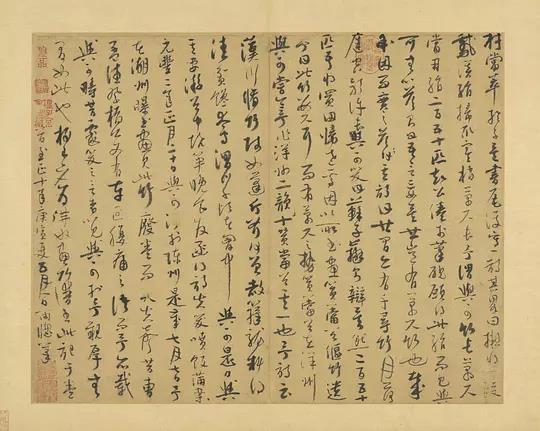 材當萃於子矣書尾復寫一詩其略曰擬將一段
鵝溪絹掃取寒梢萬尺長予謂與可竹長萬尺
當用絹二百五十匹知公倦於筆硯願得此絹而已與
可無以答則曰吾言妄矣世豈有萬尺竹也哉
余因而實之答其詩曰世間亦有千尋竹月落
庭空影許長與可笑曰蘇子辯則辯矣然二百五十
匹吾將買田歸老焉因以所畫篔簹谷偃竹遺
予曰此竹數尺耳而有萬尺之勢篔簹谷在洋州
與可嘗令予作洋州三十詠篔簹谷其一也予詩云
漢川脩竹賤如蓬斤斧何曾赦籜龍料得
清貧饞太守渭濱千畝在胸中與可是日與
其妻游谷中燒筍晚食發函得詩失笑噴飯滿案
元豐二年正月二十日與可沒於陳州是歲七月七日予
在湖州曝書畫見此竹廢卷而哭失聲昔曹
孟德祭橋公文有車過腹痛之語而予亦載
與可疇昔戲笑之言者以見與可於予親厚無
間如此也
至正十年庚寅夏五月一日